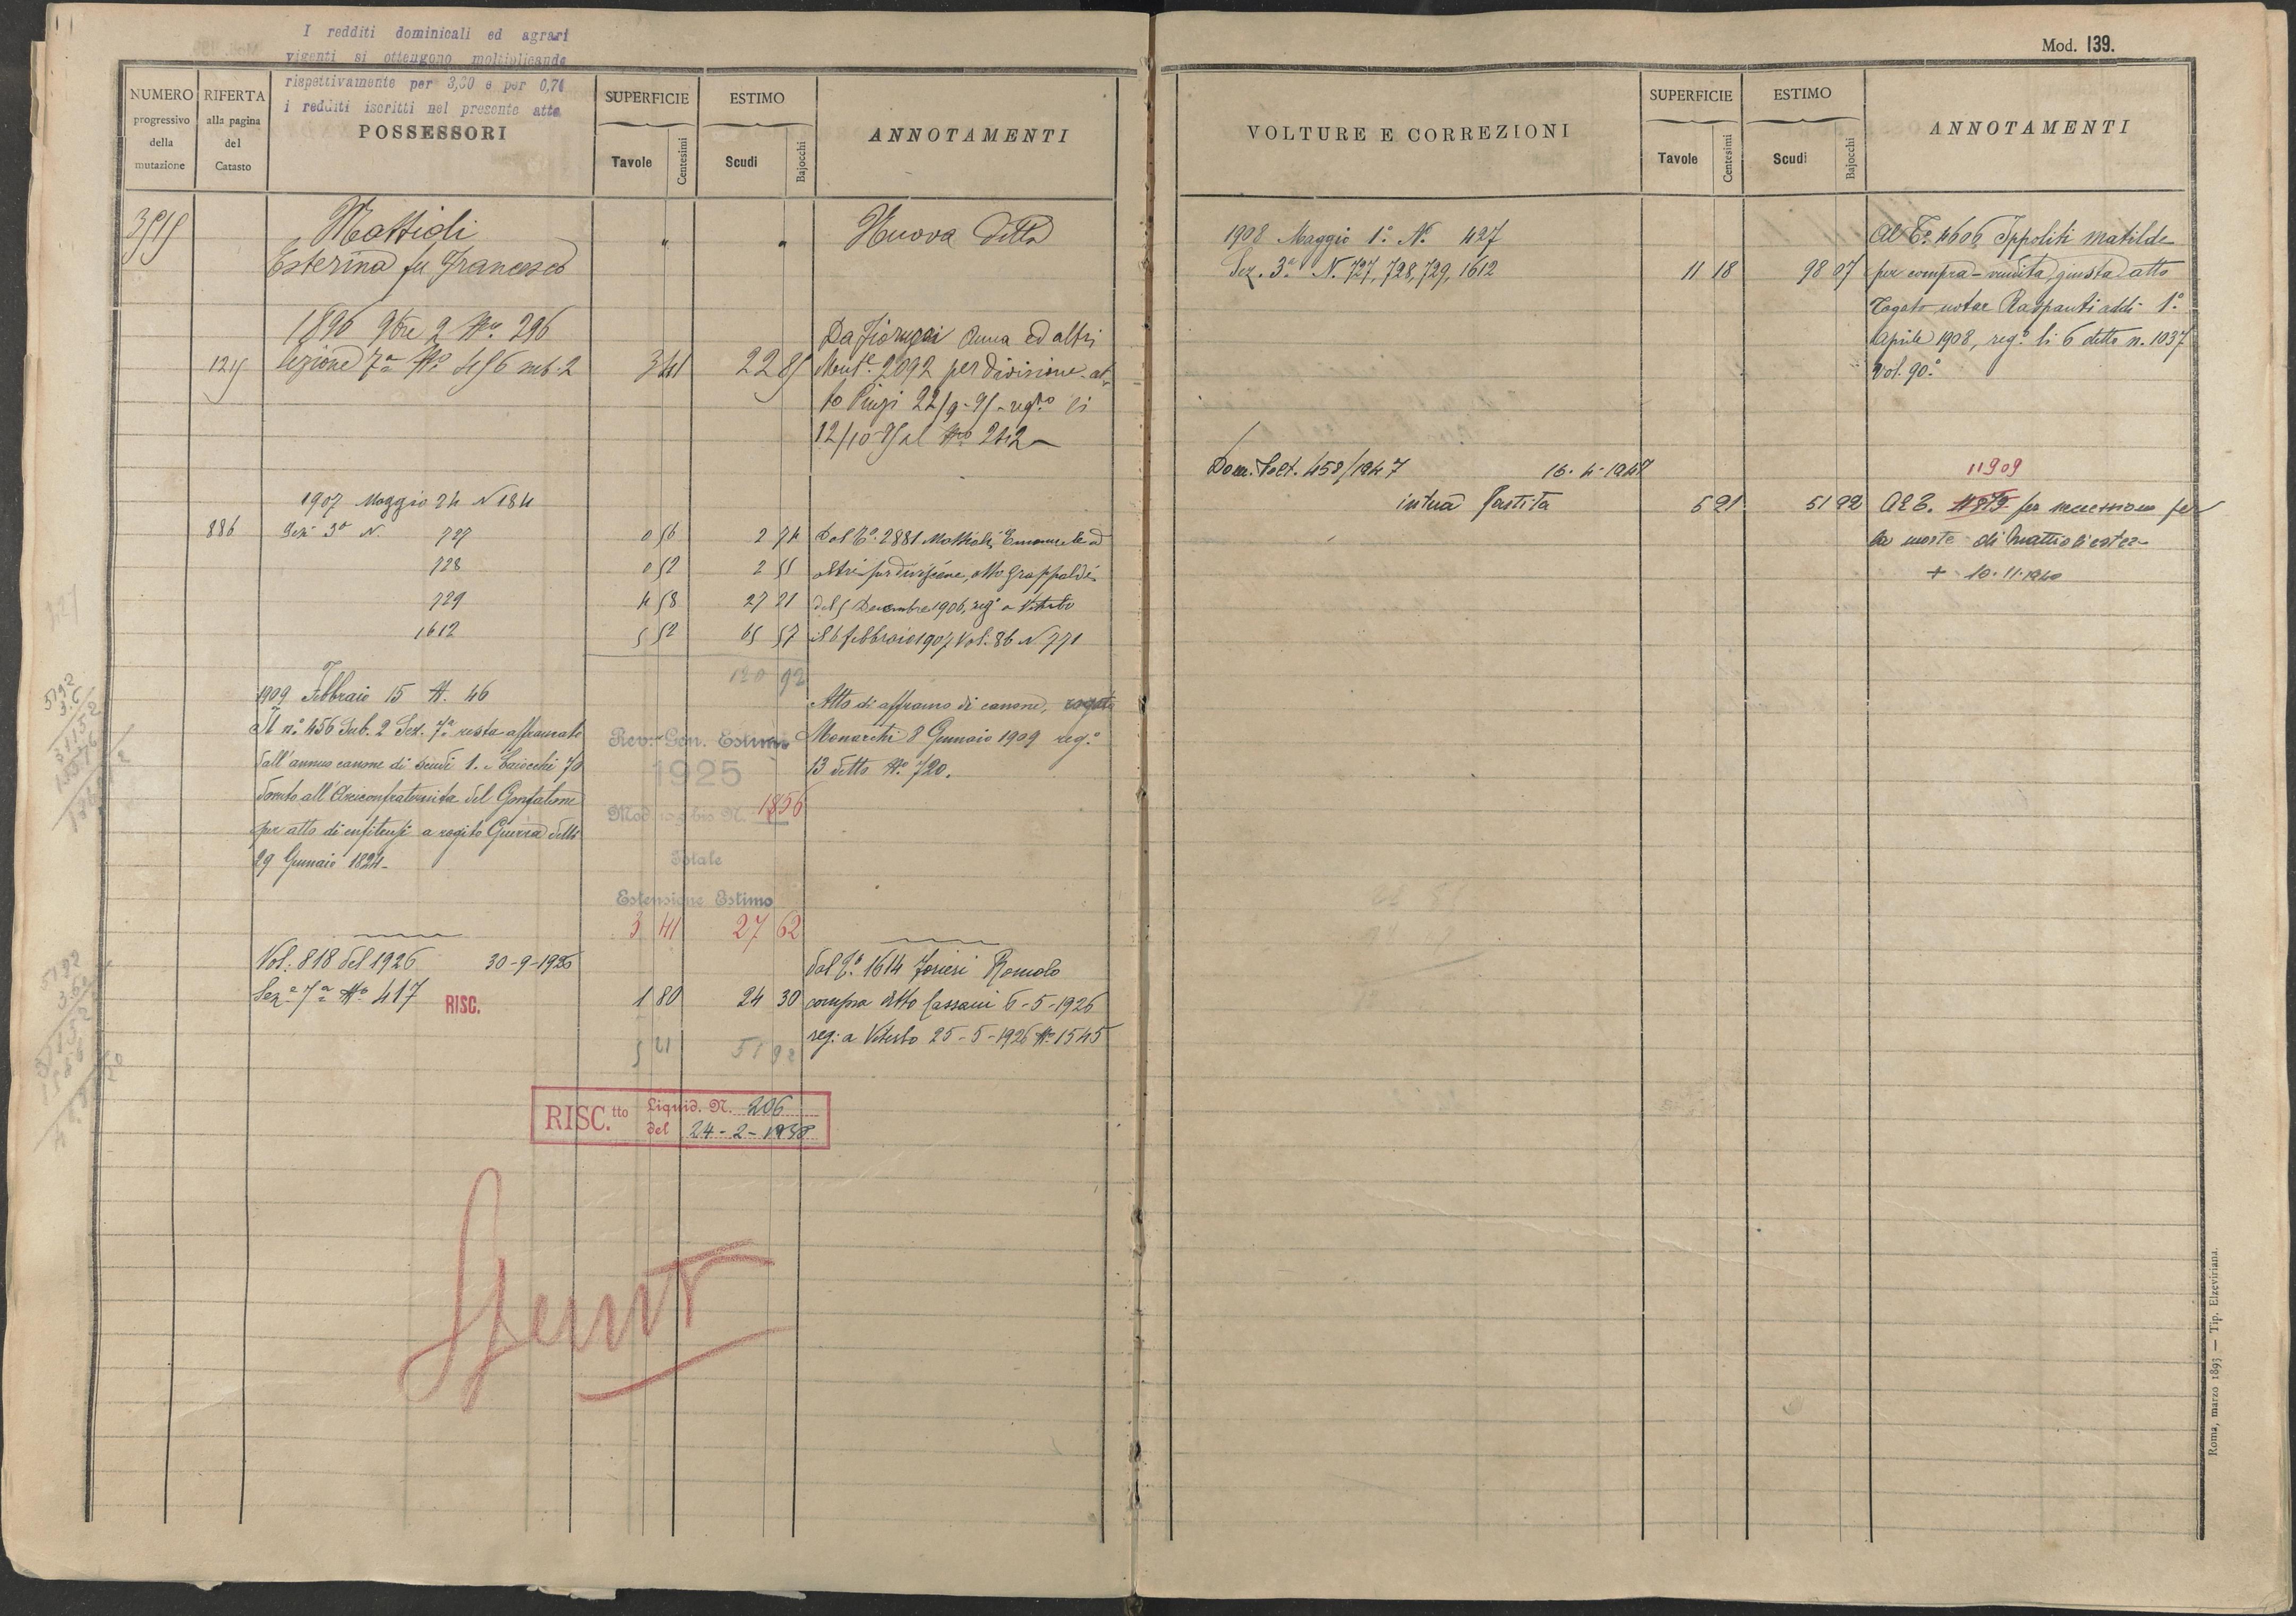 I redditi dominicali ed agrari
vigenti si ottengono moltiplicando
rispettivamente per 3,60 e per 0,74
i redditi iscritti nel presente atto
NUMERO progressivo della mutazione
RIFERTA alla pagina del Catasto
POSSESSORI
SUPERFICIE
Tavole Centesimi
ESTIMO
Scudi Bajocchi
ANNOTAMENTI
Mattioli Nuova Ditta
Esterina fu Francesco
1896 9bre 2 No. 296 Da Fiorucci Anna ed altri
Sezione 7a No 456 sub. 2 3 41 22 85 Ment.e 2092 per divisione at-
to Pinzi 22/9-95 - reg.to li
12/10-95 al No 242
1907 Maggio 24 N 184
886 Sez. 3a N. 727 0 56 2 74 Dal T.o 2881 Mattioli Emanuele ed
728 0 52 2 55 altri per divisione, atto Grappaldi
729 4 58 27 21 del 5 Decembre 1906, reg.o a Viterbo
1612 5 52 65 57 il 6 febbraio 1907 Vol. 86 N 771
120 92
1909 Febbraio 15 N. 46 Atto di affranco di canone, rogato
Il n.o 456 Sub. 2 Sez. 7a resta affrancato Monarchi 8 Gennaio 1909 reg.o
dall'annuo canone di scudi 1. e baiocchi 70 13 detto No. 720.
dovuto all'Arciconfraternita del Gonfalone
per atto di enfiteusi a rogito Guerra delli
29 Gennaio 1824-
Rev. Gen. Estimi
1925
N. 1856
Totale
Estensione Estimo
3 41 27 62
Vol: 818 del 1926 30-9-1926 dal T.o 1614 Romolo
Sez.e 7a No 417 RISC. 1 80 24 30 compra atto Cassani 6-5-1926
reg: a Viterbo 25-5-1926 No 1545
5 21 51 92
RISC.tto Liquid. N. 206
del 24-2-1938
Mod. 139.
VOLTURE E CORREZIONI
SUPERFICIE
Tavole Centesimi
ESTIMO
Scudi Bajocchi
ANNOTAMENTI
1908 Maggio 1.o N.o 427 Al T.o 4606 Ippoliti Matilde
Sez. 3a N. 727, 728, 729, 1612 11 18 98 07 per compra-vendita giusta atto
rogato notar Raspanti addì 1.o
Aprile 1908, reg.o li 6 detto n. 1037
Vol. 90.o
458/1947 16-4-1947 11909
intera Partita 5 21 51 92 Al T. per successione per
la morte di Mattioli Ester
+ 10-11-1940
Roma, marzo 1893 — Tip. Elzeviriana.